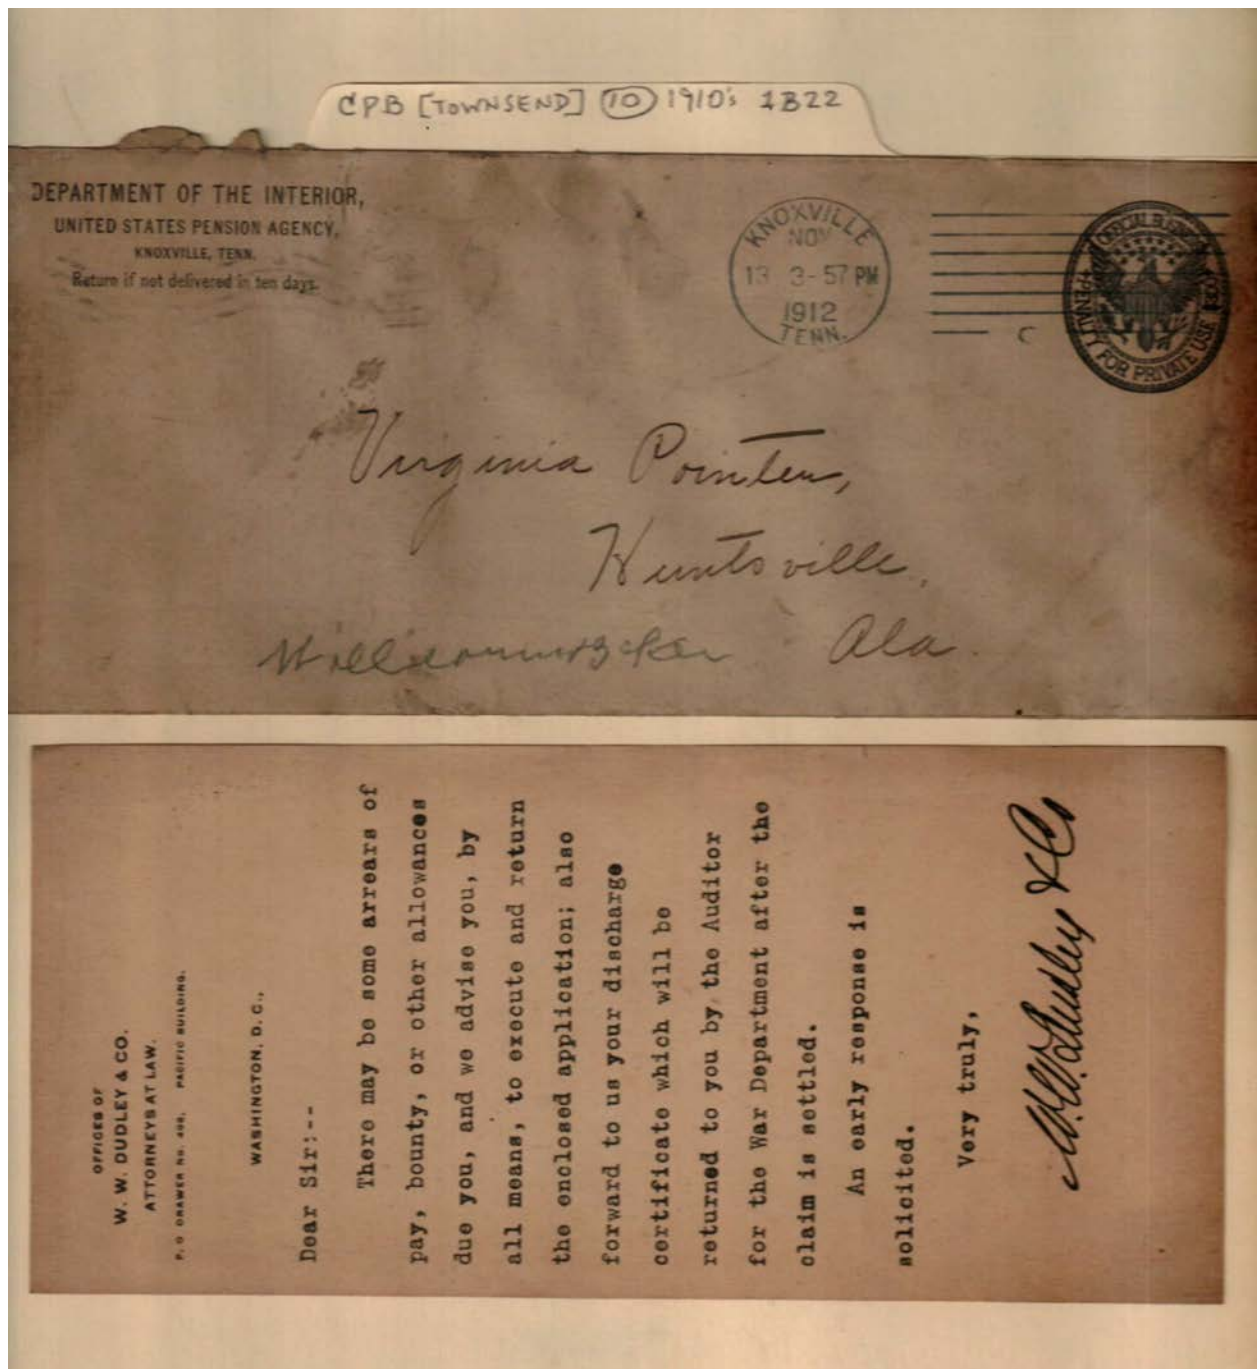 CPB [TOWNSEND] (10) 1910's 1B22
DEPARTMENT OF THE INTERIOR,
UNITED STATES PENSION AGENCY,
KNOXVILLE, TENN.
Return if not delivered in ten days.
KNOXVILLE
NOV
13 3-57 PM
1912
TENN.
OFFICIAL BUSINESS
PENALTY FOR PRIVATE USE $300
C
Virginia Pointer,
Huntsville,
Ala.
OFFICES OF
W. W. DUDLEY & CO.
ATTORNEYS AT LAW.
P. O. DRAWER No. 408, PACIFIC BUILDING.
WASHINGTON, D. C.,
Dear Sir:--
There may be some arrears of
pay, bounty, or other allowances
due you, and we advise you, by
all means, to execute and return
the enclosed application; also
forward to us your discharge
certificate which will be
returned to you by the Auditor
for the War Department after the
claim is settled.
An early response is
solicited.
Very truly,
W. W. Dudley & Co